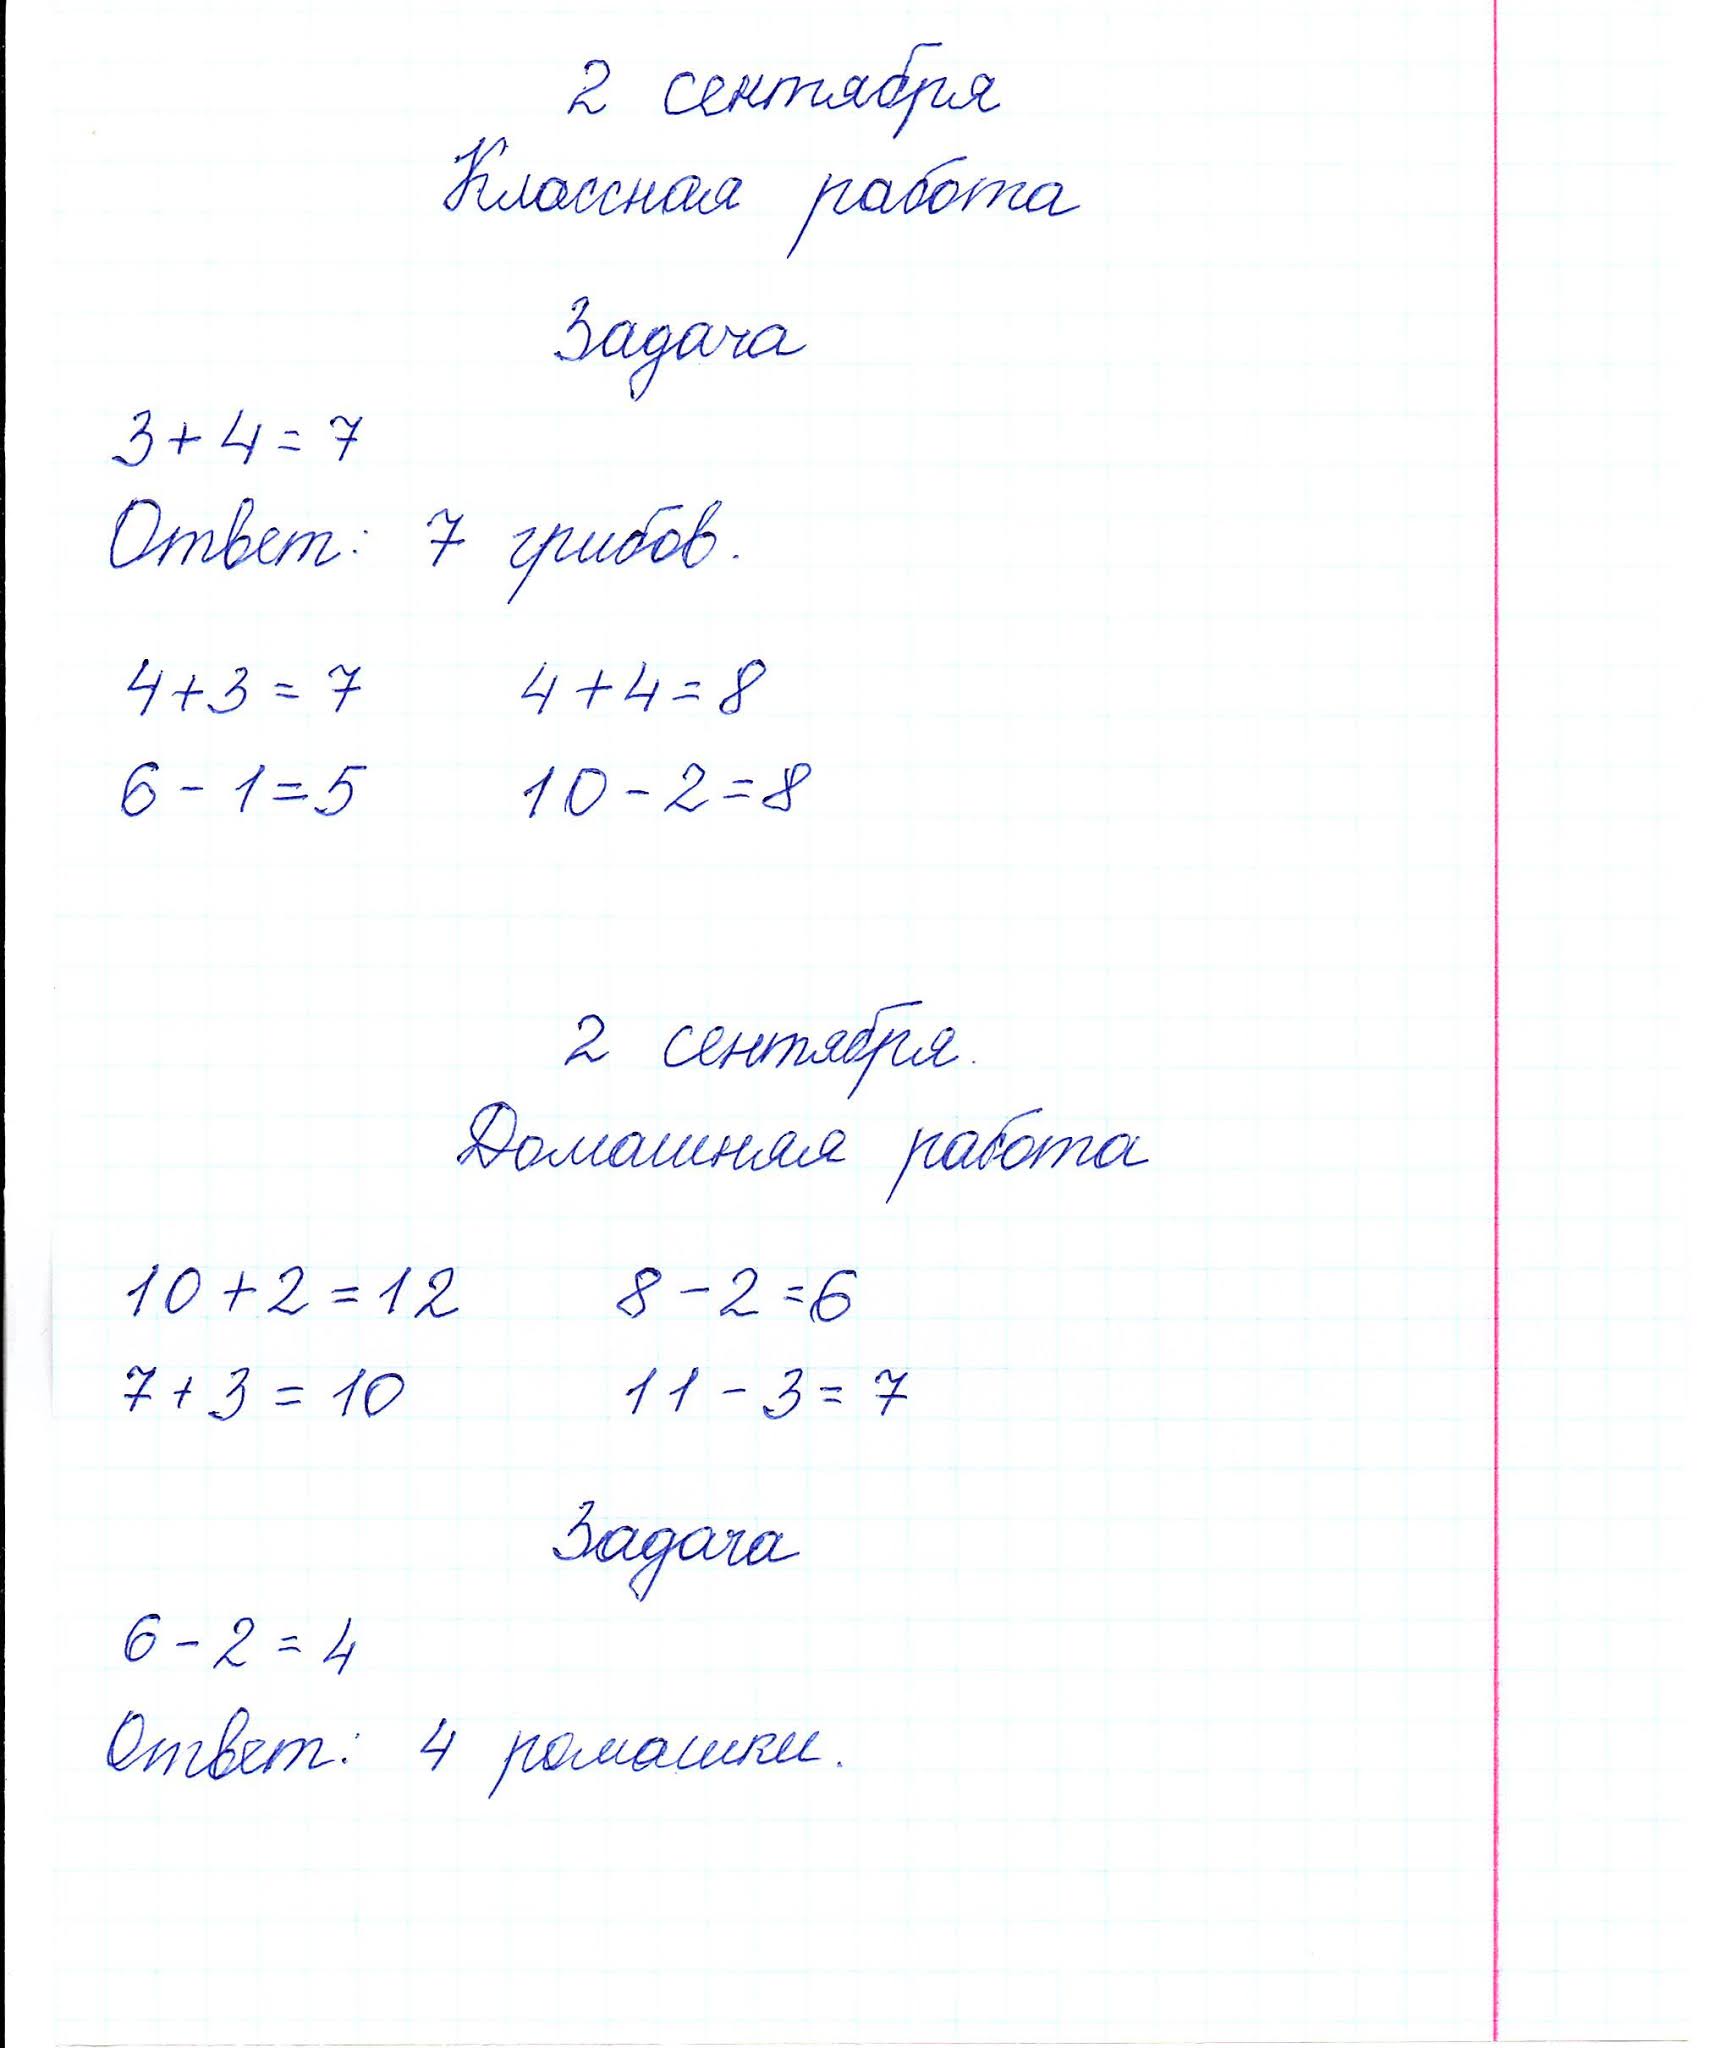 2 сентября
Классная работа
Задача
3+4=7
Ответ: 7 грибов.
4+3=7 4+4=8
6-1=5 10-2=8
2 сентября.
Домашняя работа
10+2=12 8-2=6
7+3=10 11-3=7
Задача
6-2=4
Ответ: 4 ромашки.